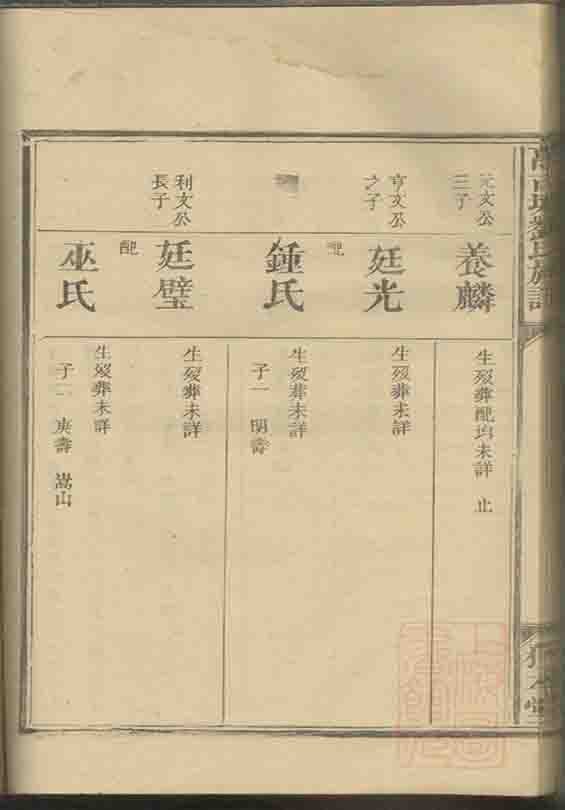 元文公
三子
養麟
生歿葬配均未詳 止
亨文公
之子
廷光
生歿葬未詳
配
鍾氏
生歿葬未詳
子一 明壽
利文公
長子
廷璧
生歿葬未詳
配
巫氏
生歿葬未詳
子二 庚壽 嵩山